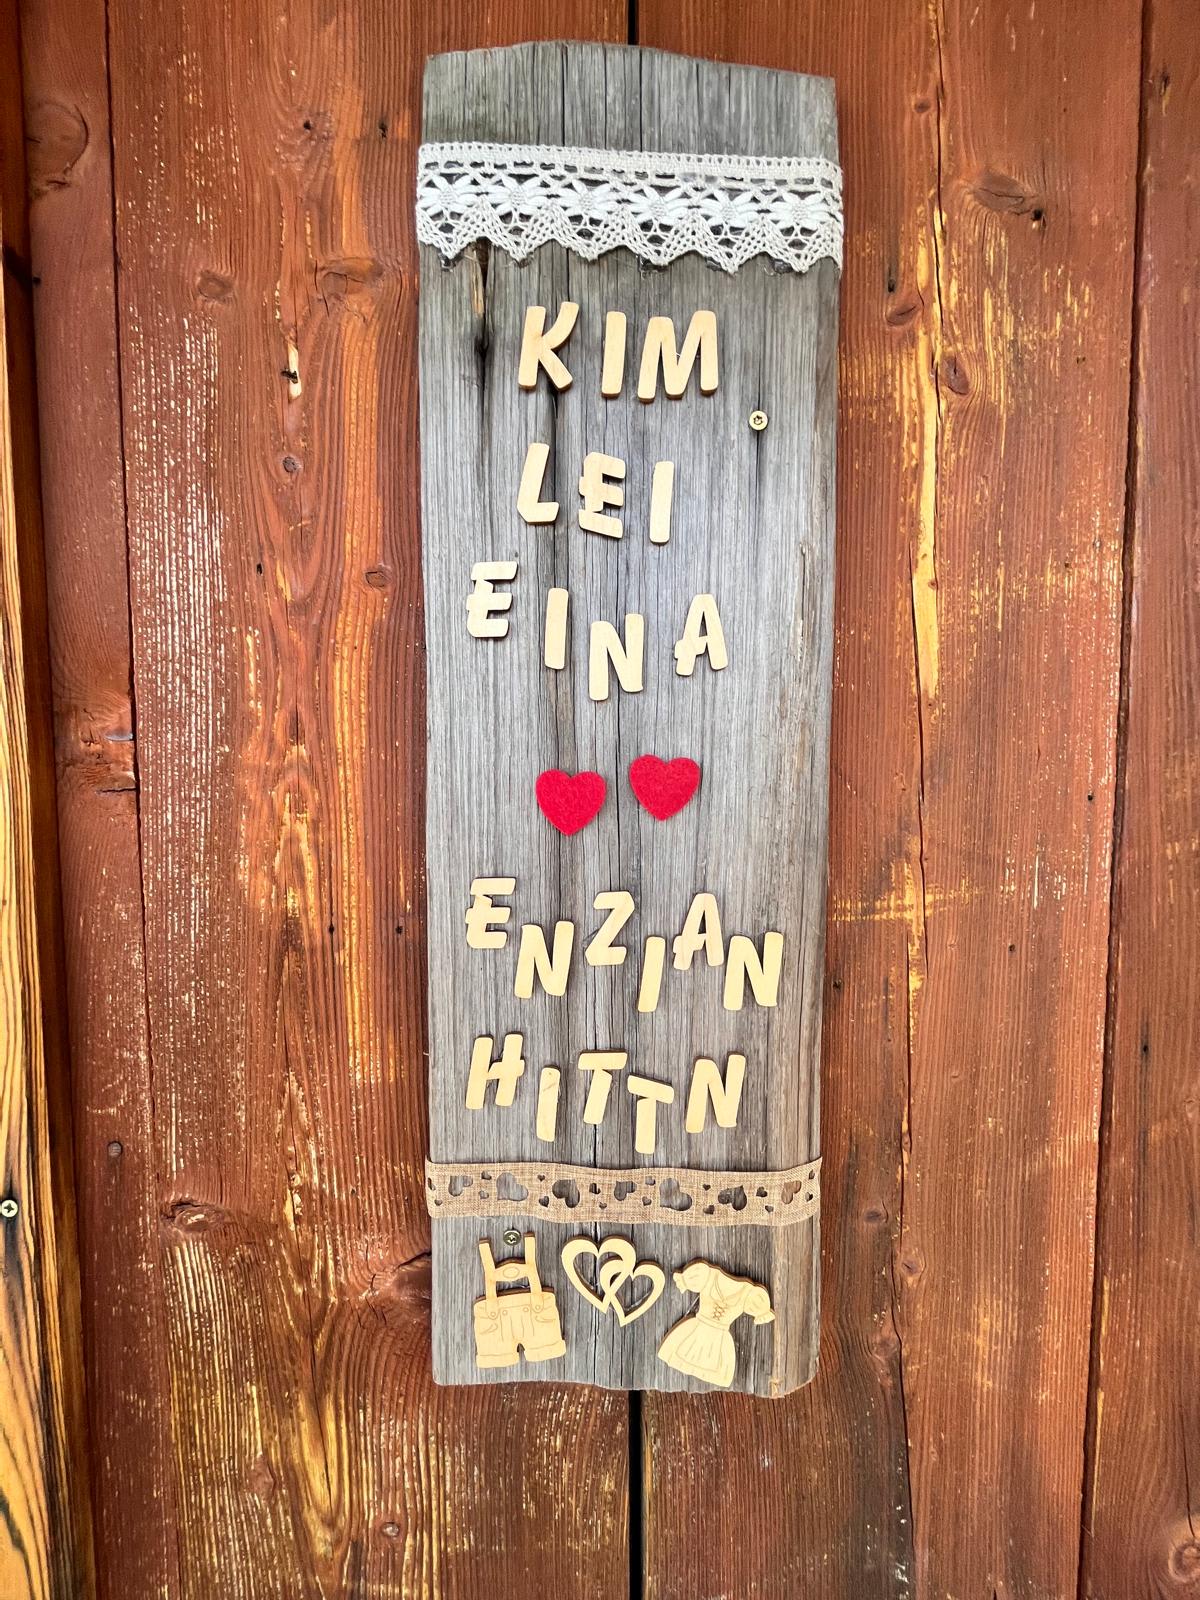 KIM
LEI
EINA
ENZIAN
HITTN